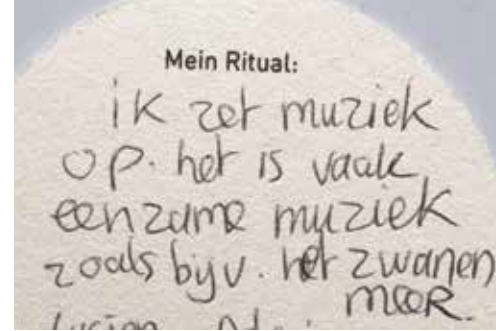 Mein Ritual:
ik zet muziek
op. het is vaak
eenzame muziek
zoals bijv. het zwanen
meer.